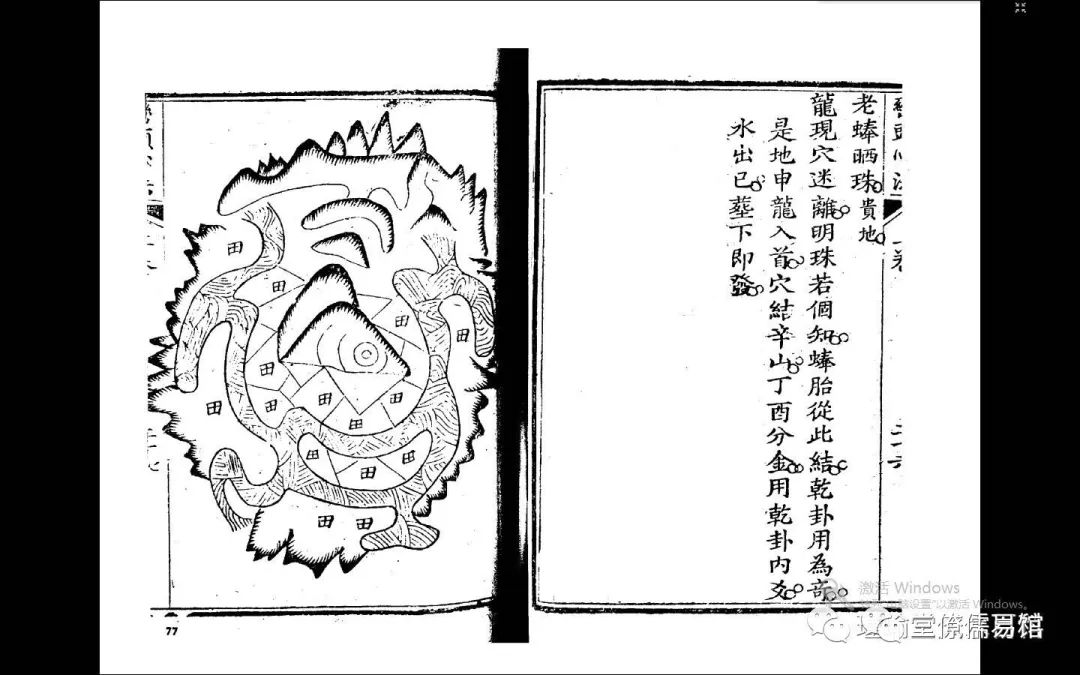 老蜯晒珠。貴地。
龍現穴迷離。明珠若個知。蜯胎從此結。乾卦用為奇。
是地申龍入首。穴結辛山。丁酉分金。用乾卦內爻。
水出巳。塟下即發。
田
田
田
田
田
田
田
田
田
田
田
田
田
田 田
77
激活 Windows
设置"以激活 Windows。
堂僚儒易馆